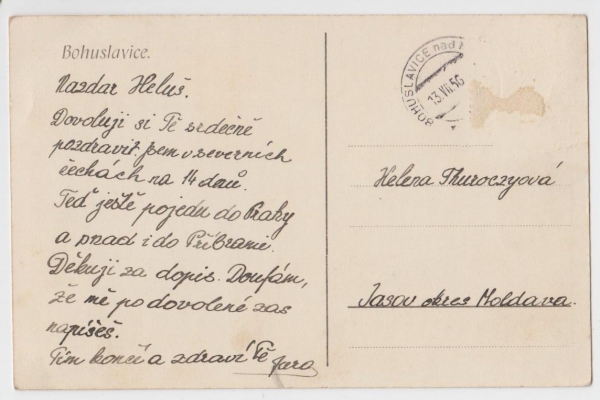 Bohuslavice.
Nazdar Heluš.
Dovoluji si Tě srdečně
pozdravit. Jsem v severních
čechách na 14 dnů.
Teď ještě pojedu do Prahy
a snad i do Příbrami.
Děkuji za dopis. Doufám,
že mě po dovolené zas
napíšeš.
Tím končí a zdraví Tě
Jara
BOHUSLAVICE nad
13.VII.56
Helena Thuroczyová
Jasov okres Moldava.